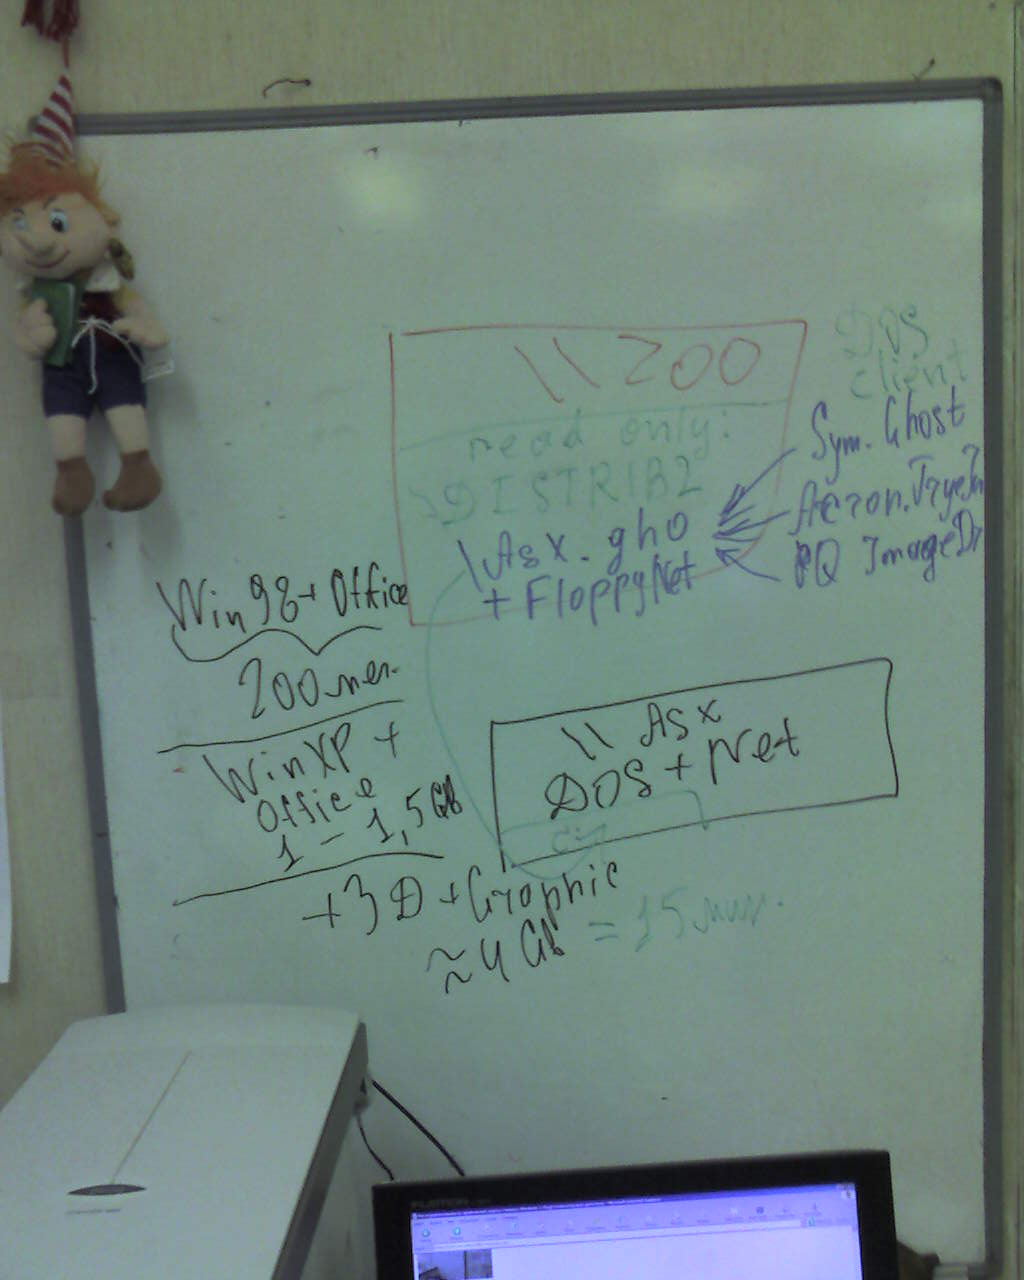 \\ 200
read only:
\DISTRIB2
\Asx.gho
+ FloppyNet
DOS
client
Sym. Ghost
Acron.TryeIm
PQ ImageDr
Win98+ Office
200 мег.
WinXP +
Office
1 - 1,5 Gb
+3D + Graphic
≈ 4 Gb = 15 мин.
\\ Asx
DOS + Net